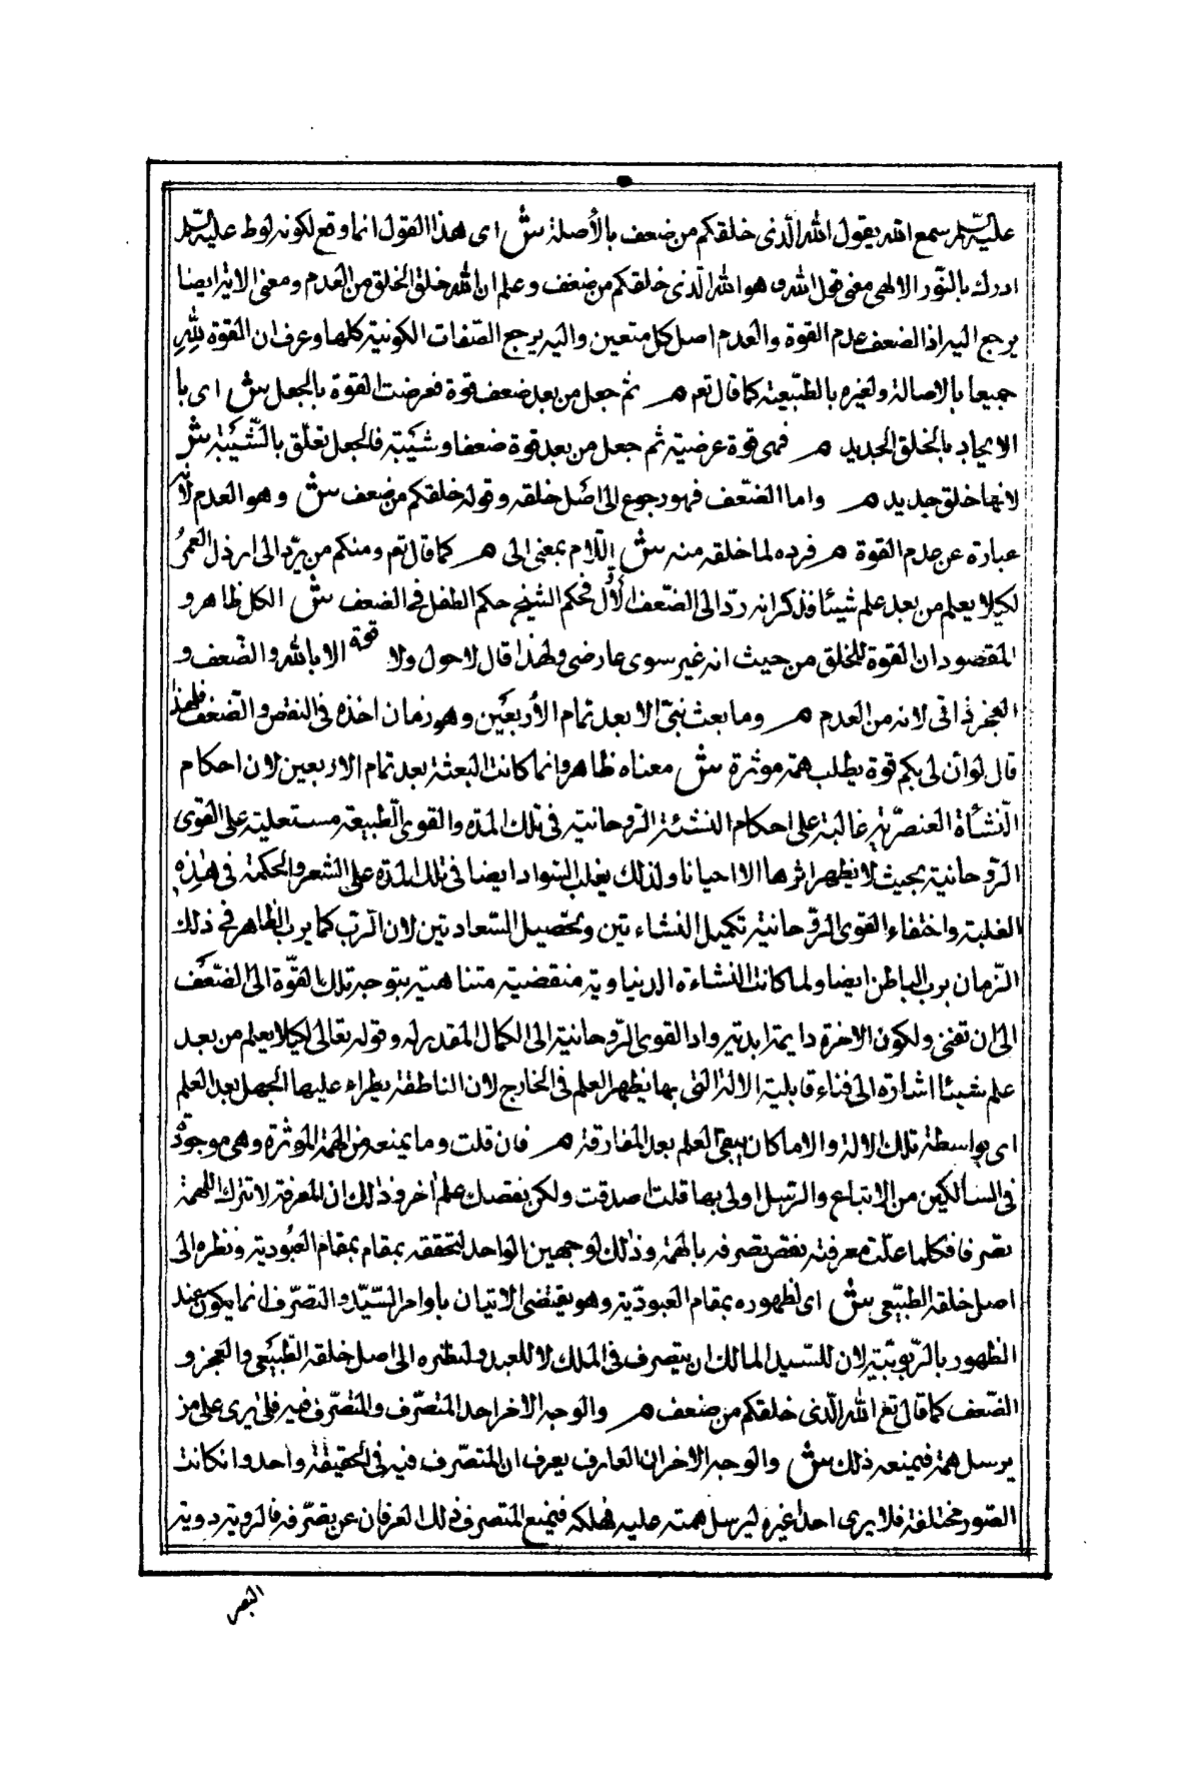 عليه السلام سمع الله يقول الله الذى خلقكم من ضعف بالأصلة ش اى هذا القول انما وقع لكونه لوط عليه السلام
ادرك بالنور الالهى معنى قول الله وهو الله الذى خلقكم من ضعف وعلم ان الله خلق الخلق من العدم ومعنى الاية ايضا
يرجع اليه اذ الضعف عدم القوة والعدم اصل كل متعين واليه يرجع الصفات الكونية كلها وعرف ان القوة لله
جميعا بالاصالة ولغيره بالطبيعة كما قال تع م ثم جعل من بعد ضعف قوة فعرضت القوة بالجعل ش اى با
الايجاد بالخلق الجديد م فهى قوة عرضية ثم جعل من بعد قوة ضعفا وشيبة فالجعل تعلق بالشيبة ش
لانها خلق جديد م واما الضعف فهو رجوع الى اصل خلقه وقوله خلقكم من ضعف ش وهو العدم لانه
عبارة عن عدم القوة م فرده لما خلقه منه ش اللام بمعنى الى م كما قال تع ومنكم من يرد الى ارذل العمر
لكيلا يعلم من بعد علم شيئا فذكر انه رد الى الضعف الأول فحكم الشيخ حكم الطفل فى الضعف ش الكل ظاهر و
المقصود ان القوة للخلق من حيث انه غير سوى عارضى ولهذا قال لا حول ولا قوة الا بالله والضعف و
العجز ذاتى لانه من العدم م وما بعث نبى الا بعد تمام الأربعين وهو زمان اخذه فى النقص والضعف فلهذا
قال لو أن لى بكم قوة يطلب همة موثرة ش معناه ظاهر وانما كانت البعثة بعد تمام الاربعين لان احكام
النشأة العنصرية غالبة على احكام النشئة الروحانية فى تلك المدة والقوى الطبيعة مستعلية على القوى
الروحانية بحيث لا يظهر اثرها الا احيانا ولذلك يغلب السواد ايضا فى تلك المدة على الشعر والحكمة فى هذه
الغلبة واختفاء القوى الروحانية تكميل النشاءتين وتحصيل السعادتين لان الرب كما يرب الظاهر فى ذلك
الزمان يرب الباطن ايضا ولما كانت النشاءة الدنياوية منقضية متناهية بتوجه تلك القوة الى الضعف
الى ان تفنى ولكون الاخرة دايمة ابدية وادا القوى الروحانية الى الكمال المقدر له وقوله تعالى لكيلا يعلم من بعد
علم شيئا اشارة الى فناء قابلية الالة التى بها يظهر العلم فى الخارج لان الناطقة يطراء عليها الجهل بعد العلم
اى بواسطة تلك الالة والا ما كان يبقى العلم بعد المفارقة م فان قلت وما يمنعه من الهمة الموثرة وهى موجودة
فى السالكين من الاتباع والرسل اولى بها قلت صدقت ولكن نقصك علم اخر وذلك ان المعرفة لا تترك للهمة
تصرفا فكلما علت معرفته نقص تصرفه بالهمة وذلك لوجهين الواحد لتحققه بمقام بمقام العبودية ونظره الى
اصل خلقه الطبيعى ش اى لظهوره بمقام العبودية وهو يقتضى الاتيان باوامر السيد والتصرف انما يكون عند
الظهور بالربوبية لان للسيد المالك ان يتصرف فى الملك لا للعبد ولنظره الى اصل خلقه الطبيعى والعجز و
الضعف كما قال تع الله الذى خلقكم من ضعف م والوجه الاخر احد المتصرف والمتصرف فيه فلا يرى على من
يرسل همة فيمنعه ذلك ش والوجه الاخر ان العارف يعرف ان المتصرف فيه فى الحقيقة واحد وانكانت
الصور مختلفة فلا يرى احدا غيره ليرسل همته عليه فهلكه فيمنع المتصرف ذلك العرفان عن تصرفه فالروية روية
البصر